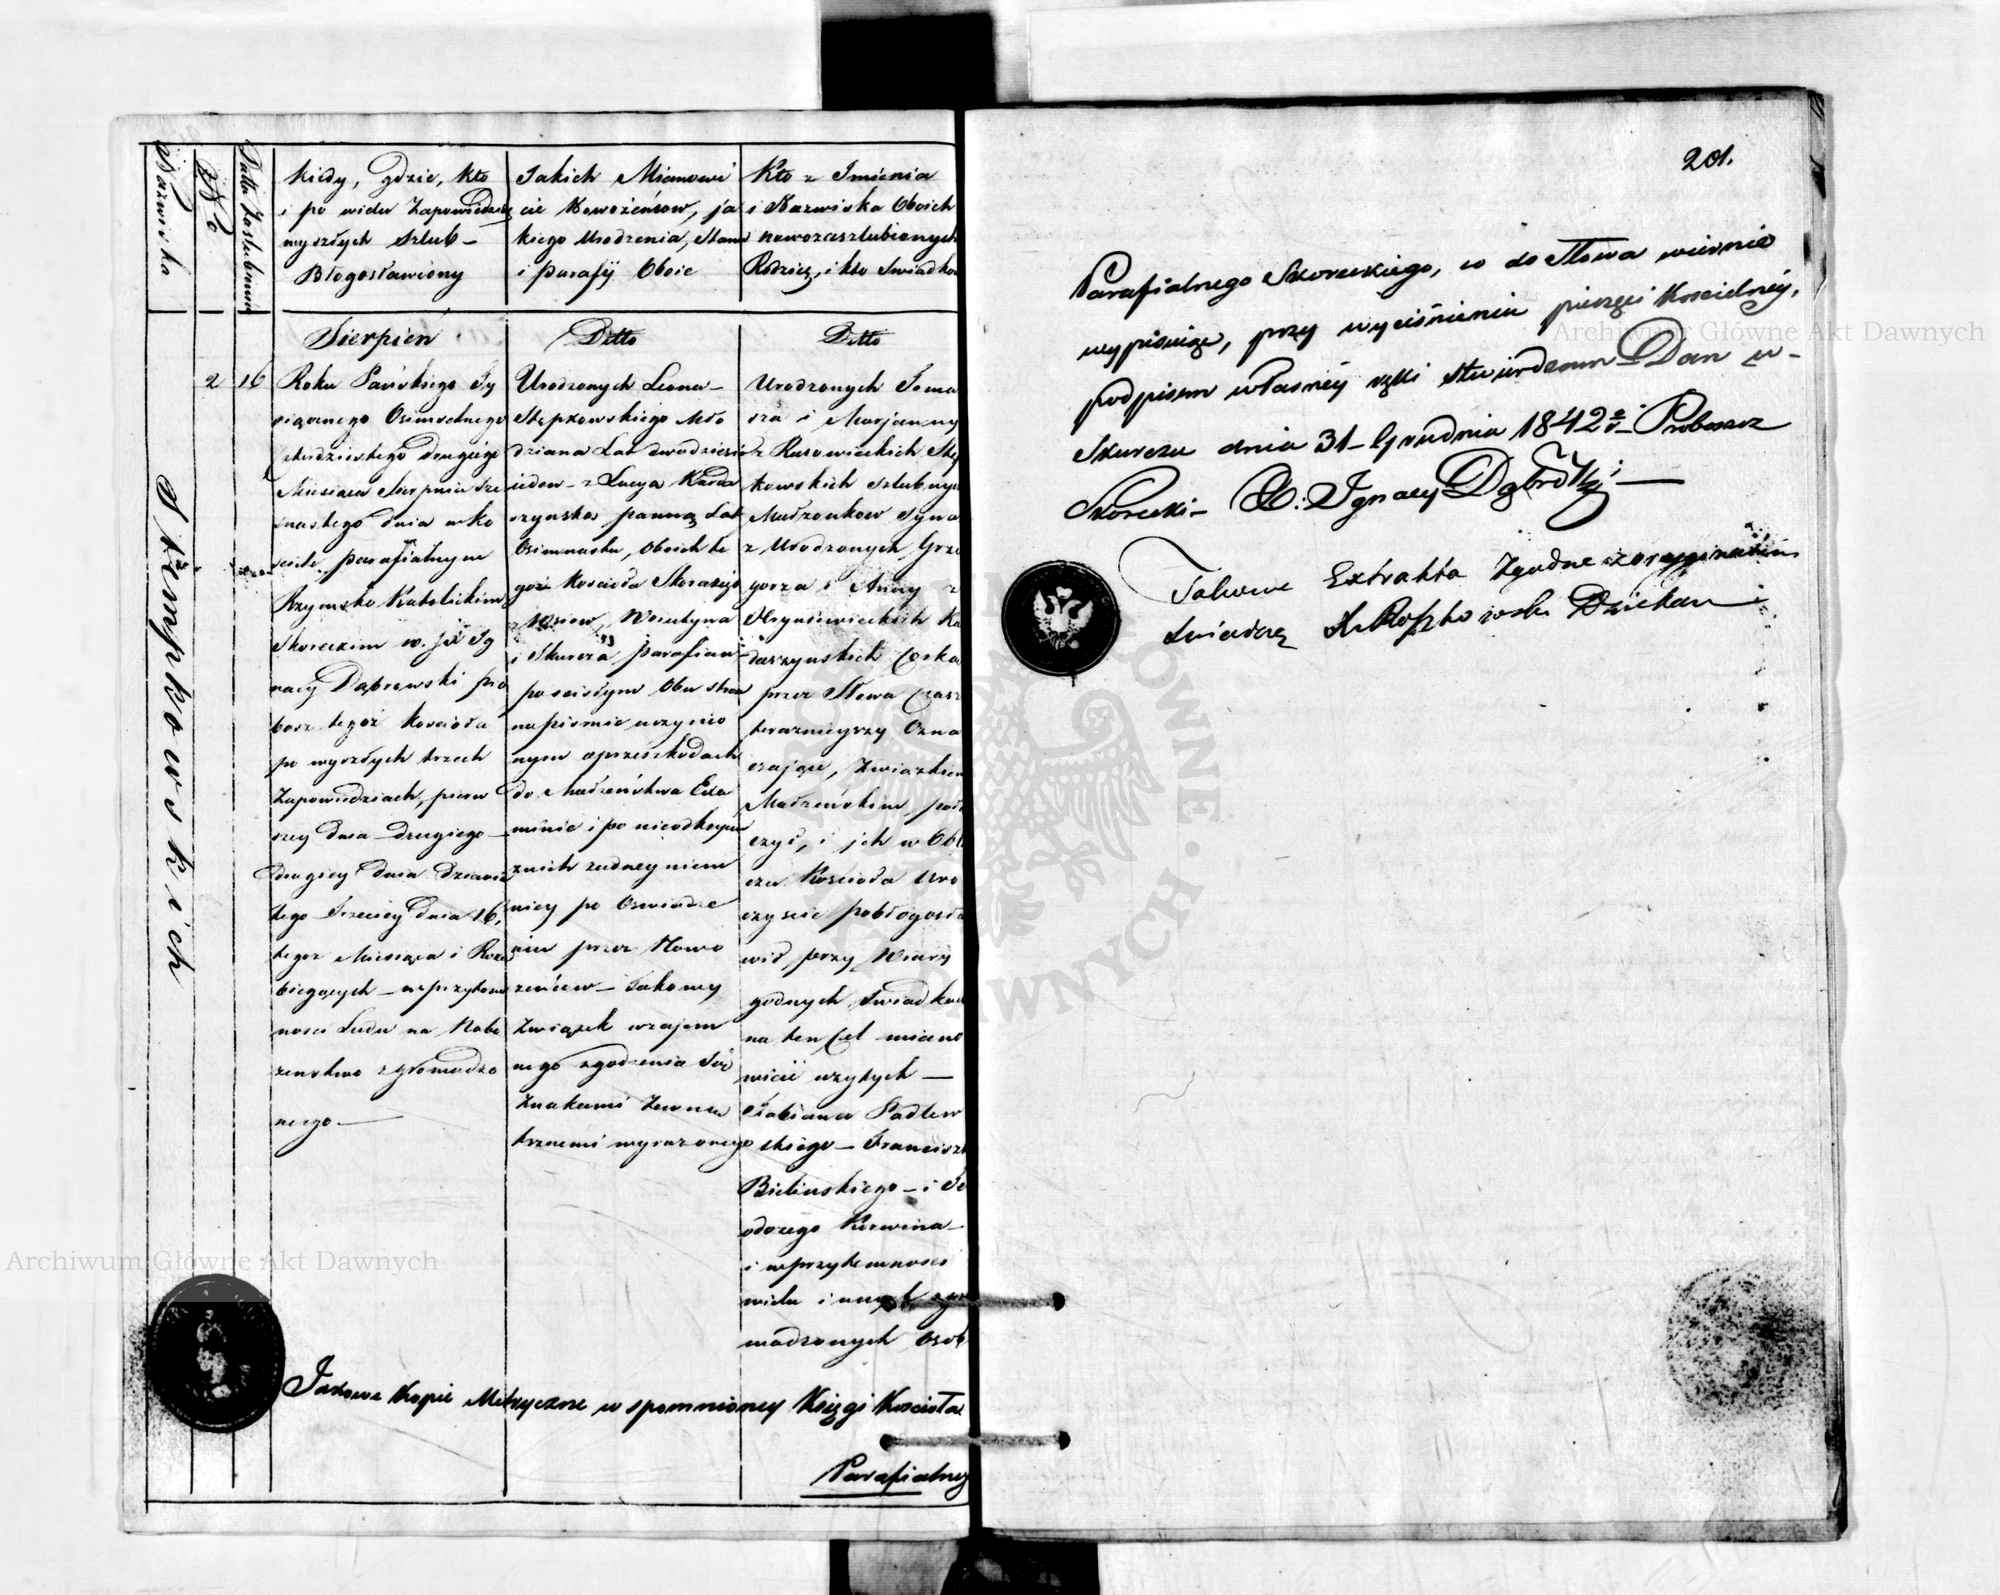 Nazwiska
No
Datta Zaslubienia
Kiedy, gdzie, kto
i po wielu Zapowiedziach
wyszłych szlub-
Błogosławiony
Jakich Mianowi
cie Nowożeńcow, ja
kiego Urodzenia, Stanu
i parafji Oboie
Kto z Imienia
i Nazwiska Oboich
nowozaszlubionych
Rodzice, i kto Swiadko
Stempkowskich
Sierpień
2 16 Roku Pańskiego Ty
siącznego Osimsetnego
Czterdziestego drugiego
Miesiaca Sierpnia Sze
snastego dnia w ko
sciele parafialnym
Rzymsko Katolickim
Skoreckim w. jX Ig
nacy Dąbrowski pro
boszz tegoż Kościoła
po wyszłych trzech
Zapowiedziach, pierw
szey dnia drugiego-
drugiey dnia dziewią
tego Trzeciey dnia 16,
tegoz Miesiąca i Roku
bieżących - w przytom
nosci Ludu na Nabo
zenstwo zgromadzo
nego-
Ditto
Urodzonych Leona-
Stępkowskiego Mło
dziana Lat dwadziescia
ieden - z Lucyą Karda
szynską panną Lat
Osimnastu, Oboich te
goż Kościoła Skoreckiego
z Wsiow, Worutyna
i Skurcza parafian
po scisłym Obu stron
na pismie uczynio
nym oprzeszkodach
do Małżeństwa Exa
minie i po nieodkryciu
znich żadney niem
niey po Oswiadcze
niu przez Nowo
żeńców - Takowy
Związek wzajem
nego zgodzenia Się
Znakami Zewnę
trznemi wyrażonego
Ditto
Urodzonych Toma
sza i Marjanny
z Rusowieckich Stęp
kowskich szlubnych
Małżonkow Syna
z Urodzonych Grze
gorza i Anny z
Hryniewieckich Ka
daszynskich Corka
przez Słowa Czas
terazmieyszy Ozna
czające, Zwiazkiem
Małżeńskim połą
czył, i ich w Obli
czu Kościoła Uro
czyscie pobłogosła
wił, przy Wiary
godnych Swiadkach
na ten Cel miano
wicie uzytych -
Fabiana Padlew
skiego - Franciszka
Bielinskiego - i Te
odorego Kerwina -
i w przytomnosci
wielu i innych zgro
madzonych osob
Takowe Kopie Metryczne w spomnioney Księgi Kościoła
Parafialney
201.
Parafialnego Skoreckiego, co do Słowa wiernie
wypisuię, przy wyciśnieniu pieczęci Koscielney,
podpisem własney ręki stwierdzam Dan w-
Skurczu dnia 31 Grudnia 1842 r. Proboszcz
Skorecki - X: Ignacy Dąbrowski
Takowe Extrakta Zgodne zorygynałem
Swiadczę X. Roszkowski Dziekan
Archiwum Główne Akt Dawnych
Archiwum Główne Akt Dawnych